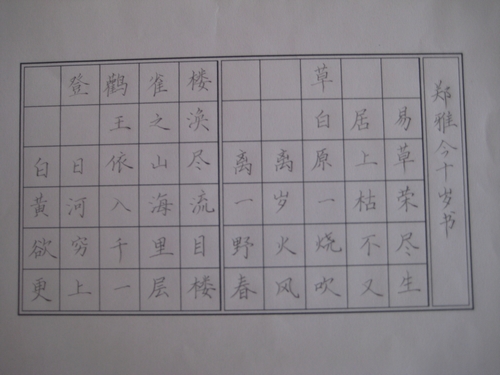 登鹳雀楼
王之涣
白日依山尽
黄河入海流
欲穷千里目
更上一层楼
草
白居易
离离原上草
一岁一枯荣
野火烧不尽
春风吹又生
郑雅今十岁书